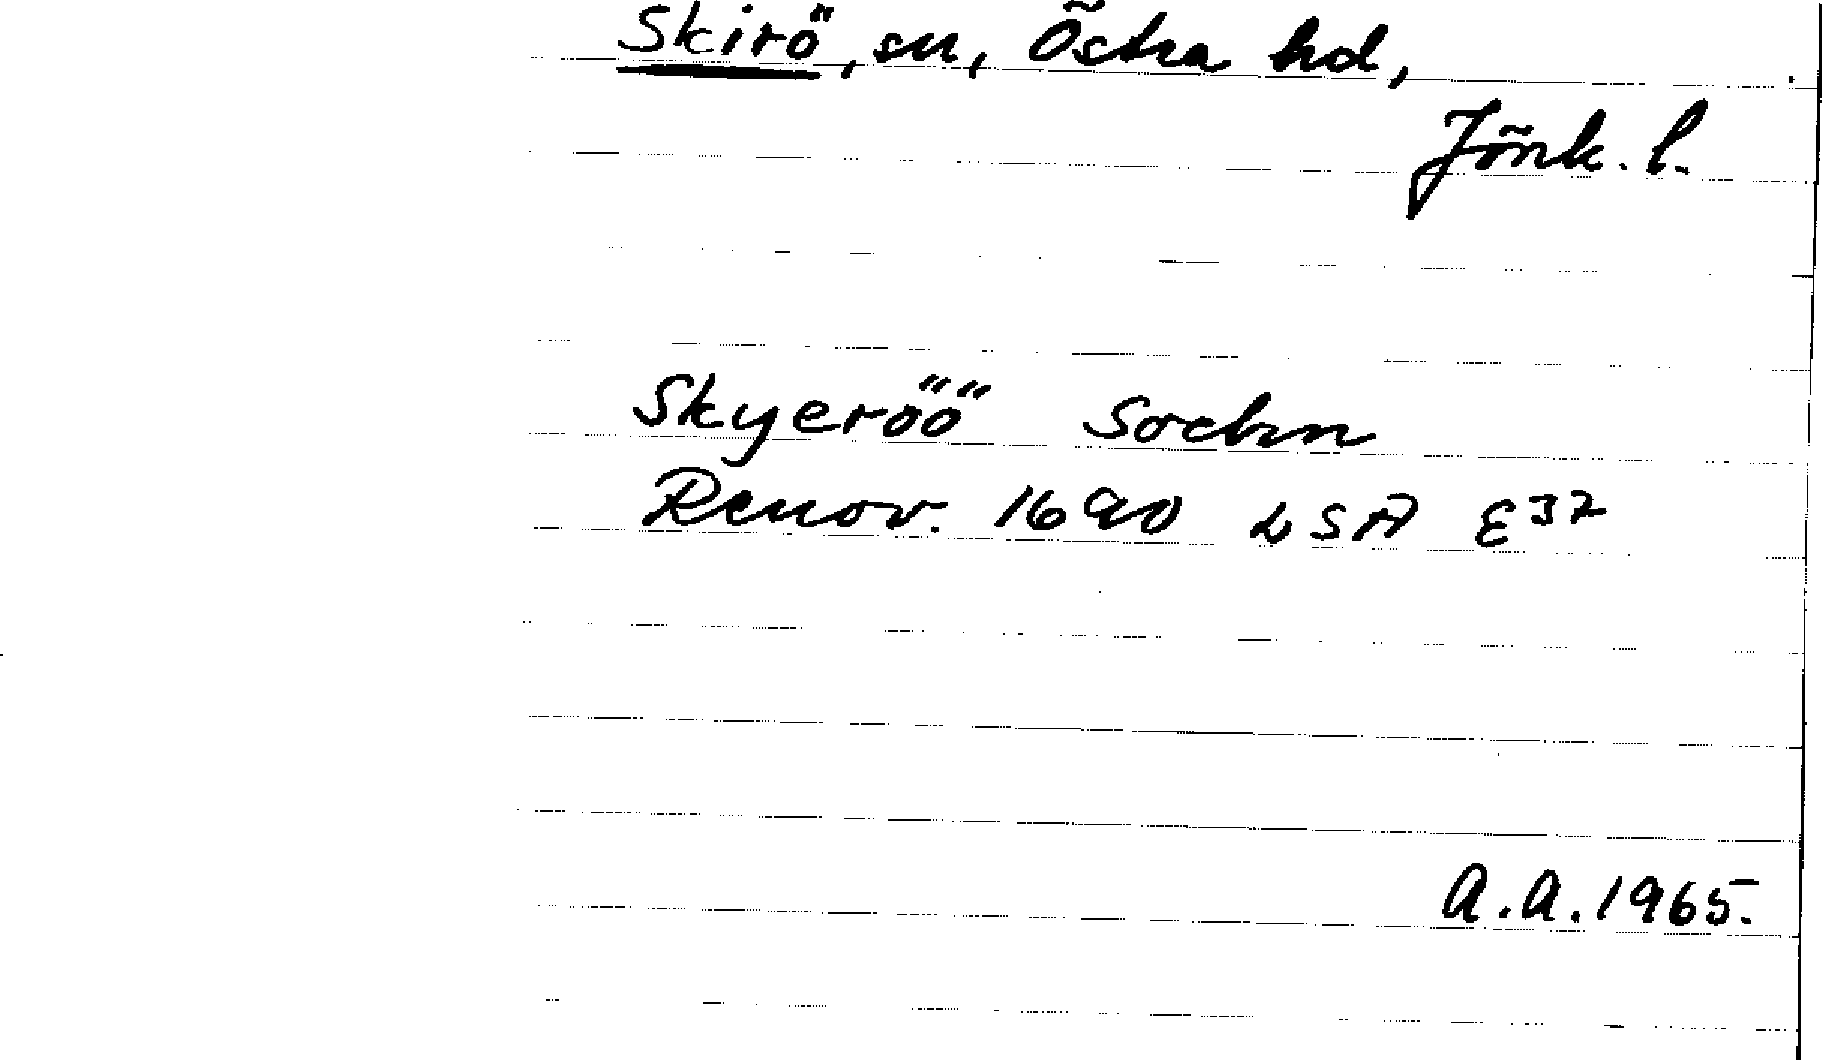 Skirö, sn, Östra hd,
Jönk. l.
Skyeröö Sochn
Renov. 1690 LSA E³²
A.A. 1965.